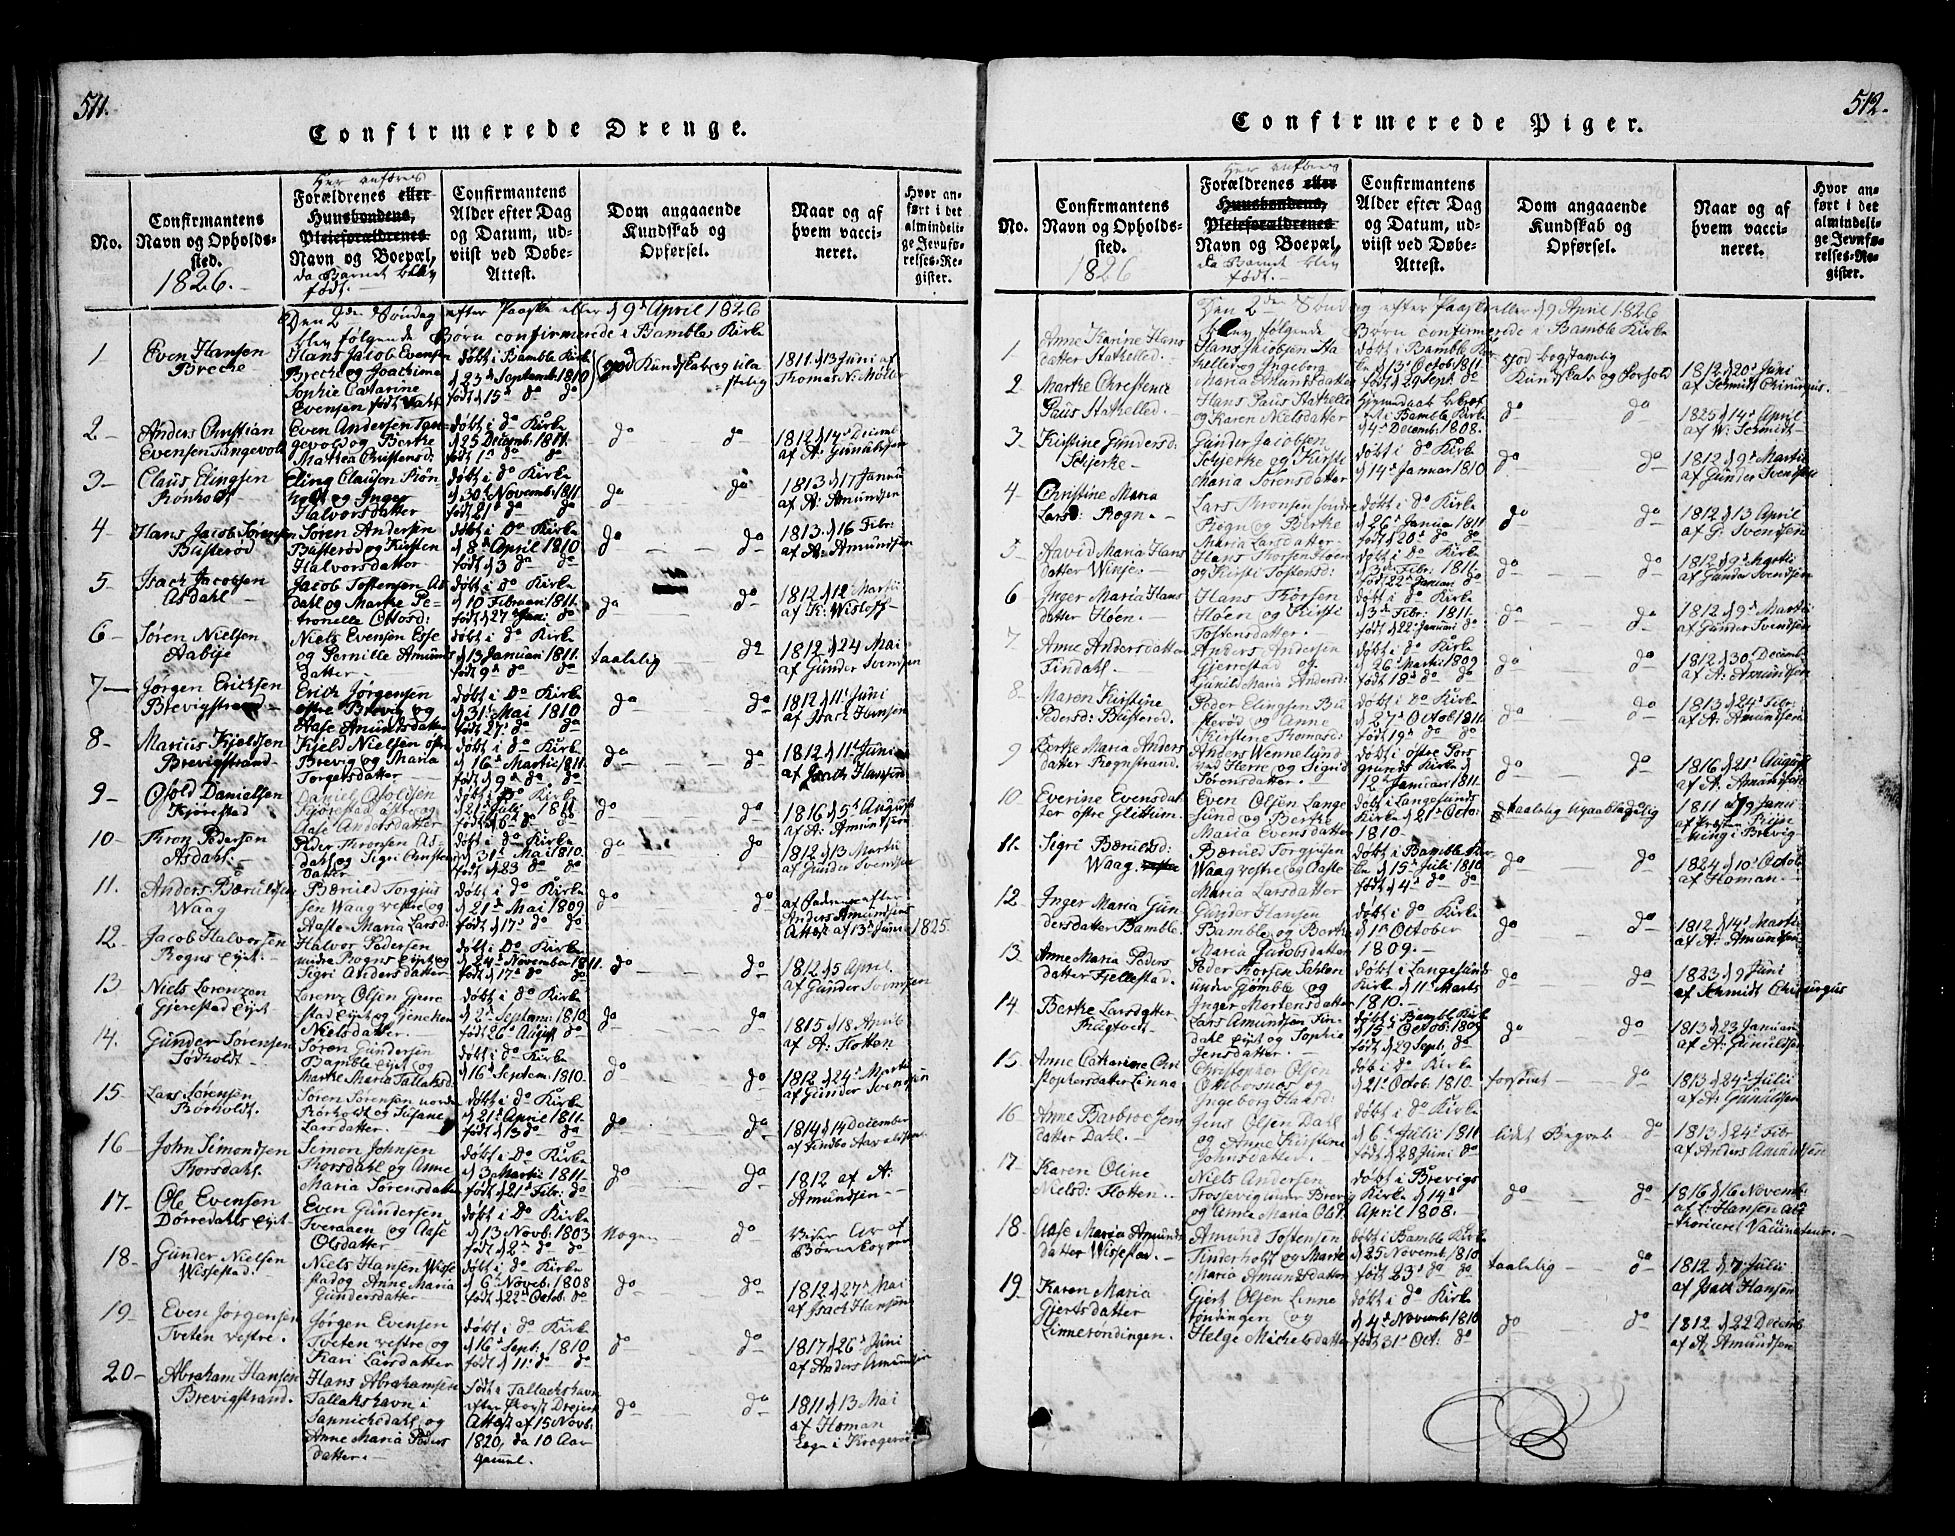 511.
Confirmerede Drenge.
No.
Confirmantens
Navn og Opholds-
sted.
1826.
Her anføres
Forældrenes eller
Huusbondens,
Pleieforældrenes
Navn og Boepæl,
da Barnet blev
født.
Confirmantens
Alder efter Dag
og Datum, ud-
viist ved Døbe-
Attest.
Dom angaaende
Kundskab og
Opførsel.
Naar og af
hvem vacci-
neret.
Hvor an-
ført i det
almindeli-
ge Jevnfø-
relses-Re-
gister.
Den 2den Søndag efter Paaske eller d 9d April 1826
blev følgende Børn confirmerede i Bamble Kirke
1
Even Hansen
Breche
Hans Jacob Evensen
Breche og Joachime
Sophie Catarine
Evensen født
døbt i Bamble Kirke
d 23d Septemb: 1810
født d 15d do do
god Kundskab og
1811 d 13 Juni af
Thomas N: Møller
2 –
Anders Christian
Evensen Tangevold
Even Andersen Tan-
gevold og Berthe
Mathea Christensd:
døbt i do Kirke
d 25 Decemb: 1811.
født 1d do do
do do
1812 d 14d Decemb
af A: Gunuldsen
3 –
Claus Elingsen
Rønholt
Eling Clausen Røn-
holt og Inger
Halvorsdatter
døbt i do Kirke
d 30d Novemb: 1811
født 21d do do
do do
1813 d 17 Januar
af A: Amundsen
4 –
Hans Jacob Sørensen
Busterød
Søren Andersen
Busterød og Kirsten
Halvorsdatter
døbt i do Kirke
d 8d April 1810
født d 3 do do
do do
1813 d 16 Febr:
af A: Amundsen
5 –
Isach Jacobsen
Asdahl
Jacob Tostensen As-
dahl og Marthe Pe-
tronelle Ottosd:
døbt i do Kirke
d 10 Februari 1811.
født d 27d Jani do
do do
1812 d 12 Martii
af K: Wisloff
6 –
Søren Nielsen
Aabye
Niels Evensen Esse
og Pernille Amunds
datter
døbt i do Kirke
d 13 Januari 1811.
født 9d do do
taalelig do
1812 d 24 Mai
af Gunder Svensen
7 –
Jørgen Erichsen
Brevigstrand
Erich Jørgensen
østre Brevig og
Aase Amundsdatter
døbt i do Kirke
d 31d Mai 1810
født 27d do do
do do
1812 d 11d Juni
af Isach Hansen
8 –
Marius Kjeldsen
Brevigstrand
Kjeld Nielsen østr
Brevig og Maria
Torgersdatter
døbt i do Kirke
d 16d Martii 1811
født d 9d do do
do do
1812 d 11d Juni
af Isach Hansen
9 –
Ofold Danielsen
Kjørestad
Daniel Ofoldsen
Kjørestad østre og
Aase Andersdatter
døbt i do Kirke
d 21d Julii 1811
født d 6d do do
do do
1816 d 5d August
af A: Amundsen
10 –
Thron Pedersen
Asdahl
Peder Thronsen As-
dahl og Sigri Christens
datter
døbt i do Kirke
d 31d Mai 1810
født d 23 do do
do do
1812 d 13 Martii
af Gunder Svensen
11.
Anders Bærulsen
Waag
Bæruld Torgius-
sen Waag vestre og
Aaste Maria Larsd:
døbt i do Kirke
d 21d Mai 1809
født d 17d do do
do do
af Faderen efter
Anders Amundsens
Attest af 13d Juni 1825.
12
Jacob Halvorsen
Rogns Eyet
Halvor Pedersen
undre Rogns Eyet og
Sigri Andersdatter
døbt i do Kirke
d 24d November 1811.
født d 17d do do
do do
1812 d 5 April
af Gunder Svensen
13
Niels Lorenzen
Gjerestad Eyet
Lorenz Olsen Gjere
stad Eyet og Jencken
Nielsdatter
døbt i do Kirke
d 2d Septemb: 1810
født 26d August do
do do
1815 d 18. April
af A: Flotten
14.
Gunder Sørensen
Tødholdt
Søren Gundersen
Bamble Eyet og
Marthe Maria Tallaksd:
døbt i do Kirke
d 16d Septem: 1810.
do do
1812 d 24d Martii
af Gunder Svensen
15
Lars Sørensen
Børholdt.
Søren Sørensen norde
Børholdt og Susane
Larsdatter.
døbt i do Kirke
d 21d April 1811.
født d 13 do do
do do
1814 d 14 December
16
John Simondsen
Thorsdahl.
Simon Johnsen
Thorsdahl og Anne
Maria Sørensdatter
døbt i do Kirke
d 3 Martii 1811.
født d 21d Febr: do
do do
1812 af A:
Amundsen
17 –
Ole Evensen
Dørredahls Eyet
Even Gundersen
Tveraaen og Aase
Olsdatter
døbt i do Kirke
d 13 Novb: 1803
født d 2d do do
Nogen do
viser Ar af
Børnekopper
18
Gunder Nielsen
Wissestad.
Niels Hansen Wisse
stad og Anne Maria
Gundersdatter
døbt i do Kirke
d 6d Novb: 1808
født d 22d Octob: do
do do
1812 d 27d Mai
af Isach Hansen
19
Even Jørgensen
Tveten vestre.
Jørgen Evensen
Tveten vestre og
Kari Larsdatter
døbt i do Kirke
d 16d Sept: 1810
født d 11d do do
do do
1817 d 26d Juni
af Anders Amundsen
20 –
Abraham Hansen
Brevigstrand.
Hans Abrahamsen
Tallakshavn i
Sannichedahl og
Anne Maria Peders
datter.
Født i Tallachshavn
efter Provst Drejers
Attest af 15 Novb:
1820, da 10 Aar
gamml.
do do
1811 d 13 Mai
af Homan
Læge i Kragerøe
512.
Confirmerede Piger.
No.
Confirmantens
Navn og Opholds-
sted.
1826
Her anføres
Forældrenes eller
Huusbondens,
Pleieforældrenes
Navn og Boepæl,
da Barnet blev
født.
Confirmantens
Alder efter Dag
og Datum, ud-
viist ved Døbe-
Attest.
Dom angaaende
Kundskab og
Opførsel.
Naar og af
hvem vacci-
neret.
Hvor an-
ført i det
almindeli-
ge Jevnfø-
relses-Re-
gister.
Den 2den Søndag efter Paaske eller d 9 April 1826
blev følgende Børn confirmerede i Bamble Kirke
1
Anne Karine Hans
datter Stathelled.
Hans Jacobsen Sta
thelle og Ingeborg
Maria Amundsdatter
døbt i Bamble Kir
ke d 13d Octob 1811
født d 29 Sept: do
god bogstavelig
Kundskab og Forhold
1812 d 20d Juni
af Schmidt Chirurgus.
2
Marthe Christence
Paus Stathelled.
Hans Paus Stathelle
og Karen Nielsdatter
hjemdøbt
i Bamble Kirke
d 4d Decemb: 1808.
do do
1825 d 14d April
af W: Schmidt
3
Kirstine Gundersd:
Schjerke
Gunder Jacobsen
Schjerke og Kirsti
Maria Sørensdatter
døbt i do Kirke
d 14d Januar 1810
do do
1812 d 9d Martii
af Gunder Svensen
4
Christine Maria
Larsd: Rogn.
Lars Thronsen søndre
Rogn og Berthe
Maria Larsdatter
døbt i do Kirke
d 26d Januar 1811
født d 20d do do
do do
1812 d 13 April
af G. Svensen
5
Aavid Maria Hans
datter Winje
Hans Thorsen Høen
og Kirsti Tostensd:
døbt i do Kirke
d 3d Febr: 1811.
født 22d Januari do
do do
1812 d 9d Martii
af Gunder Svendsen
6
Inger Maria Hans
datter Høen.
Hans Thorsen
Høen og Kirsti
Tostensdatter.
døbt i do Kirke
d 3d Febr: 1811.
født d 22d Januari do
do do
1812 d 9d Martii
af Gunder Svendsen
7
Anne Andersdatter
Findahl.
Anders Andersen
Gjerrestad og
Gunild Maria Andersd:
døbt i do Kirke
d 26d Martii 1809
født 18d do do
do do
1812 d 30d Decemb
af A: Amundsen
8
Maren Kirstine
Pedersd: Busterød.
Peder Elingsen Bu
sterød og Anne
Kirstine Thomasd:
døbt i do Kirke
d 27d Octob 1811.
født 19d do do
do do
1813 d 24d Febr:
af A: Amundsen
9
Berthe Maria Anders
datter Rognstrand.
Anders Wennelund
ved Herre og Sigrid
Sørensdatter.
døbt i østre Pors
grunds Kirke d
12d Januari 1811.
do do
1816 d 21d August
af A: Amundsen
10.
Everine Evensdat
ter østre Glittum.
Even Olsen Lange
sund og Berthe
Maria Evensdatter
døbt i Langesunds
Kirke d 21d Octo:
1810.
taalelig upaaklagelig
1811 d 19 Januar
af Præsten Krise
Ning i Brevig
11.
Sigri Bærulsd:
Waag.
Bæruld Torgiusen
Waag vestre og Aaste
Maria Larsdatter
døbt i Bamble Kir
ke d 15d Juli 1810
født d 4d do do
do do
1824 d 10d Octob:
af Homan.
12.
Inger Maria Gun
dersdatter Bamble.
Gunder Hansen
Bamble og Bertha
Maria Jacobsdatter
døbt i do Kirke
d 1d October
1809.
do do
1812 d 14d Martii
af A: Amundsen
13.
Anne Maria Peders
datter Fjellestad.
Peder Thorsen Sahlen
under Gomble og
Inger Mortensdatter
døbt i Langesunds
Kirke d 11d Marts
1810.
do do
1823 d 9 Juni
af Schmidt Chirurgus
14
Berthe Larsdatter
Rugtvedt
Lars Amundsen Fin
dahl Eyet og Sophia
Jensdatter.
døbt i Bamble Kirke
d 15d Octob: 1809
født d 29 Sept: do
do do
1813 d 23 Januari
af A: Gunuldsen
15.
Anne Catharine Chri
stophersdatter Linna
Christopher Olsen
Ombersnæs og
Ingeborg Hansd:
døbt i do Kirke
d 21d Octob. 1810.
forsømt do
1813 d 24d Julii
af A: Gunuldsen
16
Anne Barbroe Jens
datter Dahl.
Jens Olsen Dahl
og Anne Kirstine
Johnsdatter.
døbt i do Kirke
d 6d Julii 1811
født d 28 Juni do
lidet Begreb do
1813 d 24d Febr
af Anders Amundsen
17 –
Karen Oline
Nielsd: Flotten.
Niels Andersen
Trossevig under Brevig
og Anne Maria Olsd.
døbt i Brevigs
Kirke d 14d
April 1808.
do do
1816 d 16 Novemb:
af L: Hansen au
thoriseret Vaccinateur.
18.
Aase Maria Amunds
datter Wissestad.
Amund Tostensen
Tinderholt og Marthe
Maria Amundsdatter
døbt i Bamble Kirke
d 25 Novemb: 1810
født 23d do do
taalelig do
1812 d 7d Julii
af Isach Hansen
19
Karen Maria
Gjertsdatter
Linnerøndingen.
Gjert Olsen Linne
røningen og
Helge Michelsdatter
døbt i do Kirke
d 4d Novemb: 1810
født 31d Oct: do
do do
1812 d 22 Decemb
af A: Amundsen